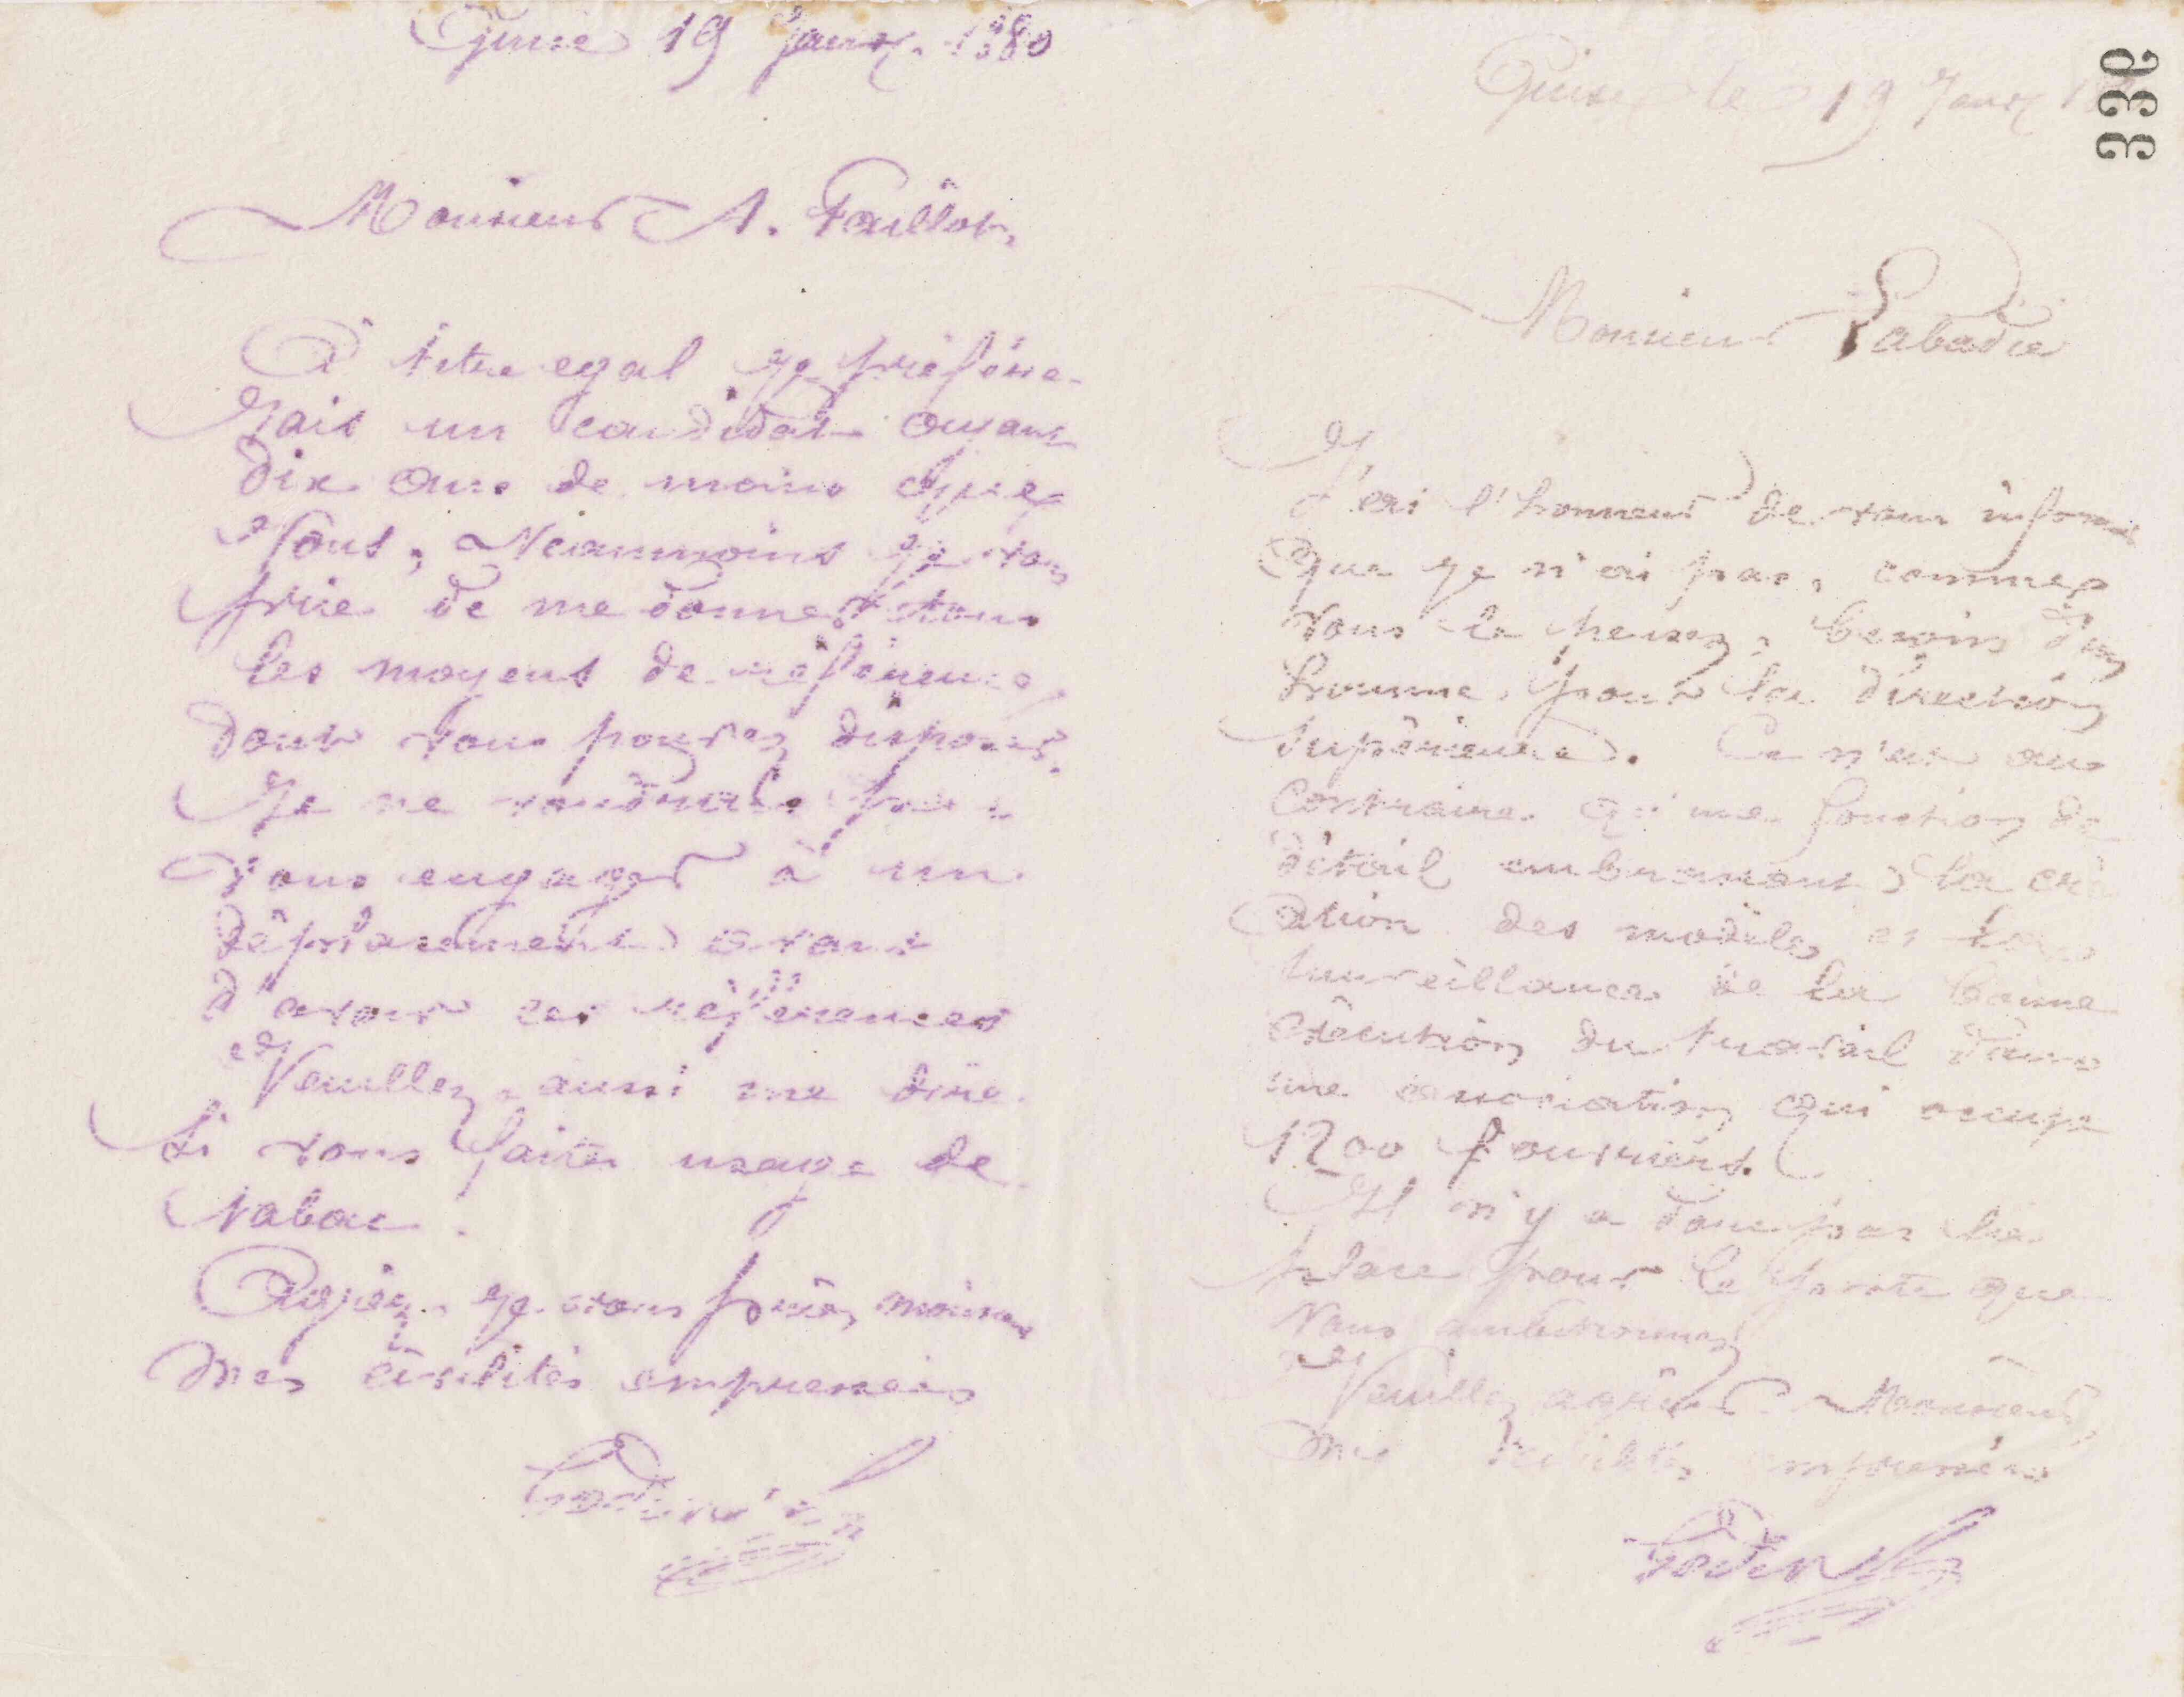 Guise 19 Janv. 1880
Monsieur A. Faillot,
A titre egal je préfére-
rais un candidat ayant
dix ans de moins que
vous, Néanmoins je vous
prie de me donner tous
les moyens de référence
dont vous pouvez disposer.
Je ne voudrais pas
vous engager à un
déplacement avant
d'avoir ces références
Veuillez aussi me dire
si vous faites usage de
tabac.
Agréez je vous prie, monsieur
mes civilités empressées
Godin
336
Guise le 19 Janv
Monsieur Labadie
J'ai l'honneur de vous informer
que je n'ai pas, comme
vous le pensez, besoin d'un
homme pour la direction
supérieure. Ce n'est au
contraire qu'une fonction de
détail embrassant la cré
ation des modèles et la
surveillance de la bonne
exécution du travail dans
une association qui occupe
1200 ouvriers.
Il n'y a donc pas lieu
place pour le poste que
vous ambitionnez
Veuillez agréer Monsieur
mes civilités empressées
Godin